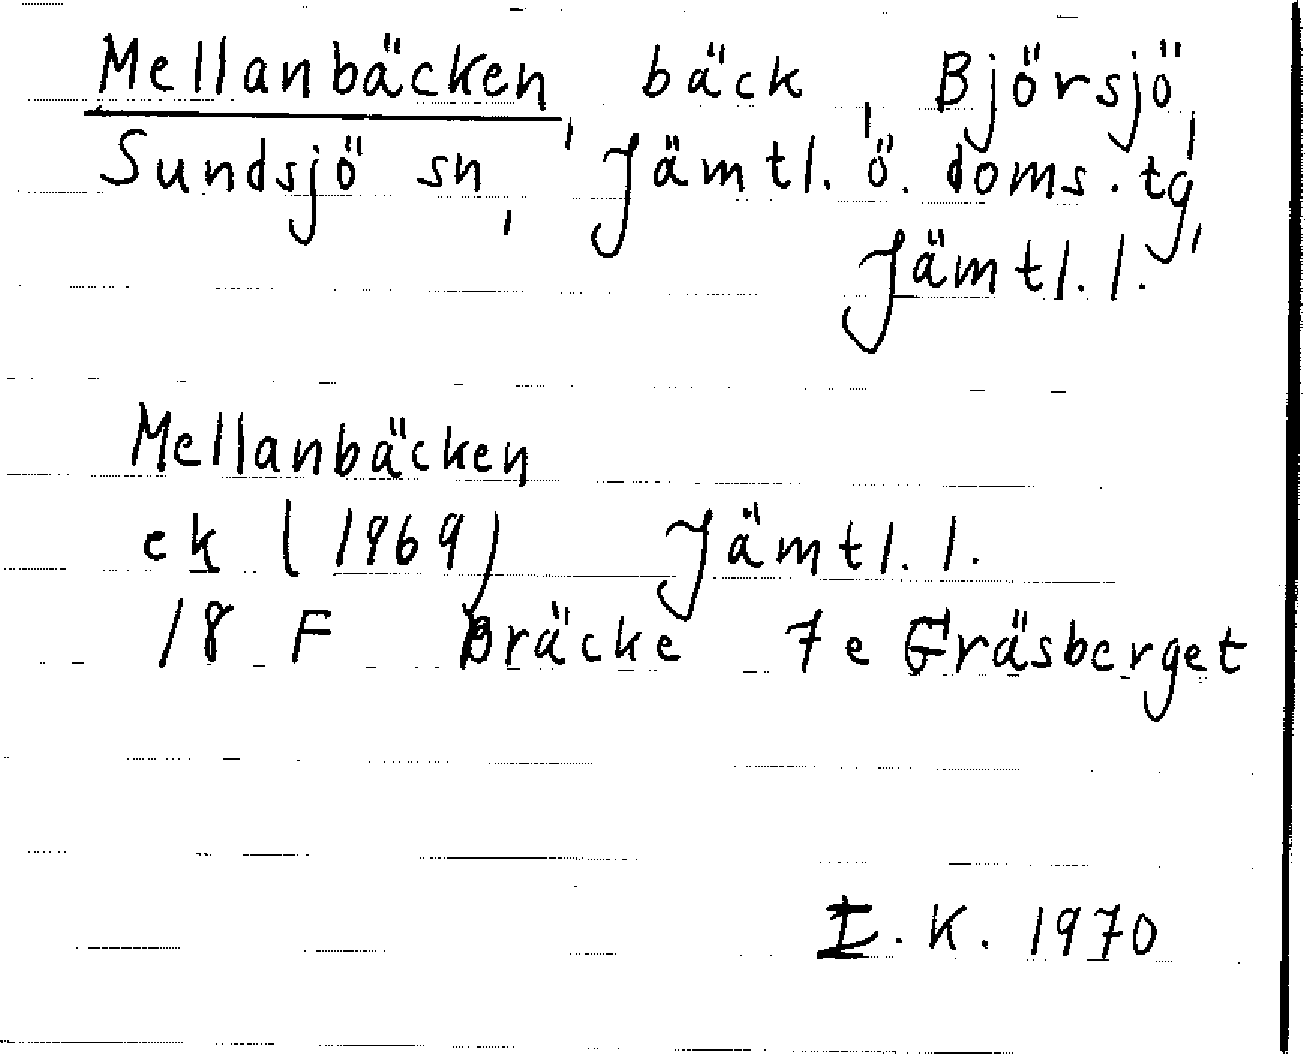 Mellanbäcken, bäck, Björsjö,
Sundsjö sn, Jämtl. ö. doms. tg,
Jämtl. l.
Mellanbäcken
ek (1969) Jämtl. l.
18 F Bräcke 7e Gräsberget
I. K. 1970